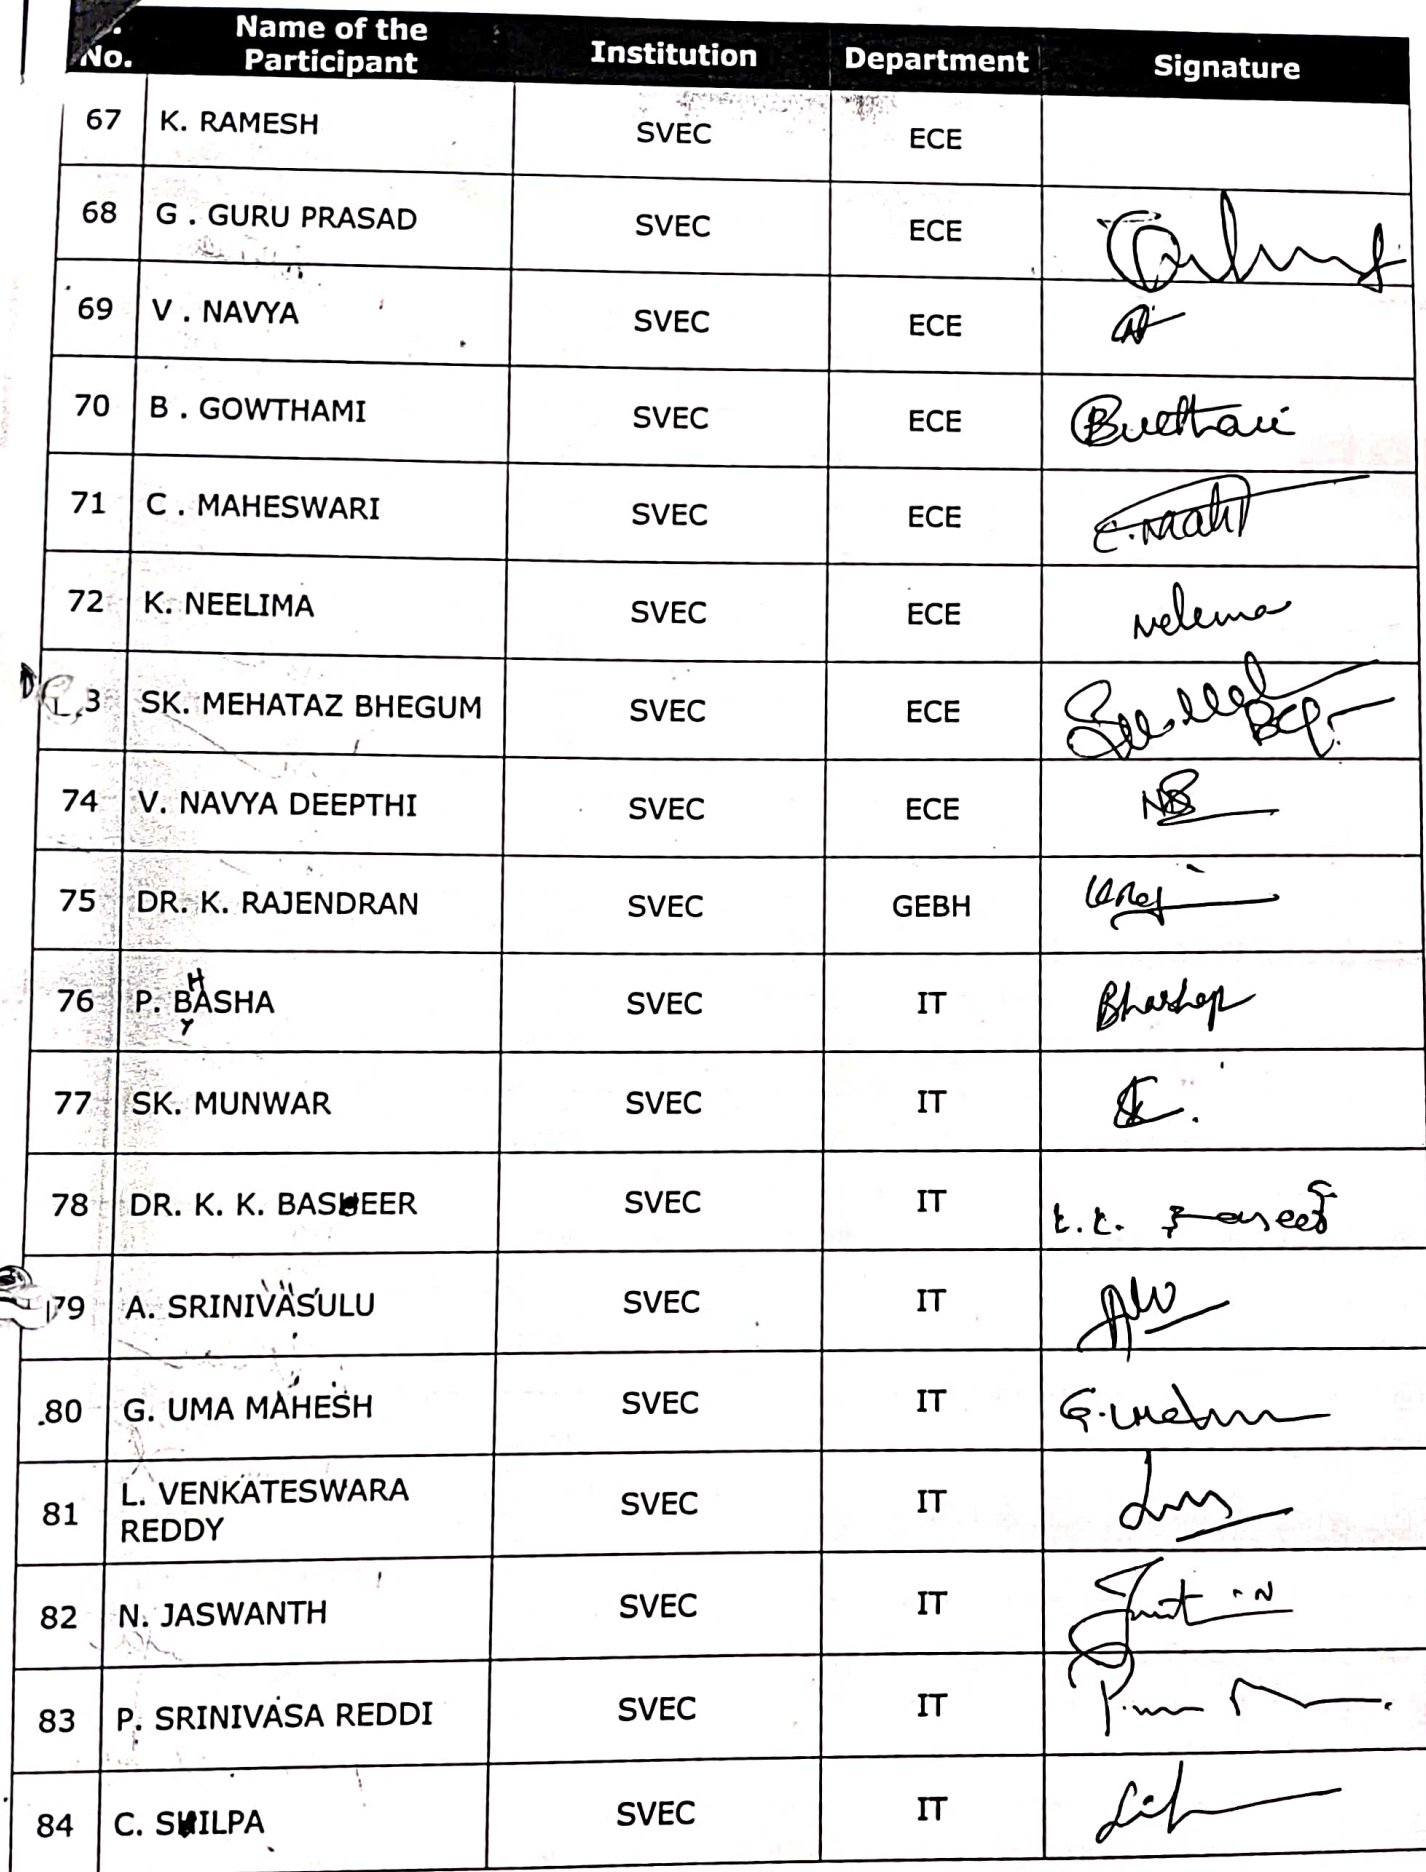 No. Name of the Participant Institution Department Signature
67 K. RAMESH SVEC ECE
68 G . GURU PRASAD SVEC ECE
69 V . NAVYA SVEC ECE
70 B . GOWTHAMI SVEC ECE
71 C . MAHESWARI SVEC ECE
72 K. NEELIMA SVEC ECE
3 SK. MEHATAZ BHEGUM SVEC ECE
74 V. NAVYA DEEPTHI SVEC ECE
75 DR. K. RAJENDRAN SVEC GEBH
H
76 P. BASHA SVEC IT
77 SK. MUNWAR SVEC IT
78 DR. K. K. BASHEER SVEC IT
79 A. SRINIVASULU SVEC IT
80 G. UMA MAHESH SVEC IT
81 L. VENKATESWARA REDDY SVEC IT
82 N. JASWANTH SVEC IT
83 P. SRINIVASA REDDI SVEC IT
84 C. SHILPA SVEC IT